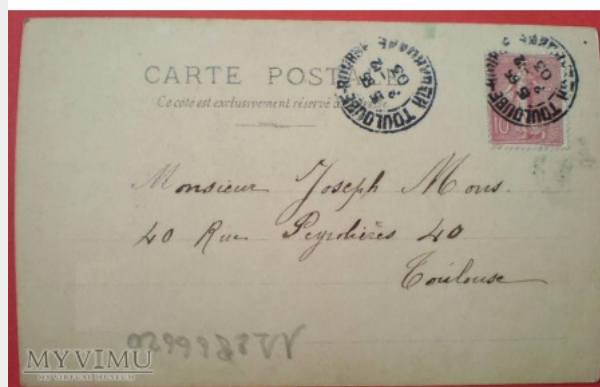 CARTE POSTALE
Ce côté est exclusivement réservé à
TOULOUSE-BOURSE
03
TOULOUSE
03
10
Monsieur Joseph Mons.
40 Rue Peyrolières 40
Toulouse
MYVIMU
MY VIRTUAL MUSEUM